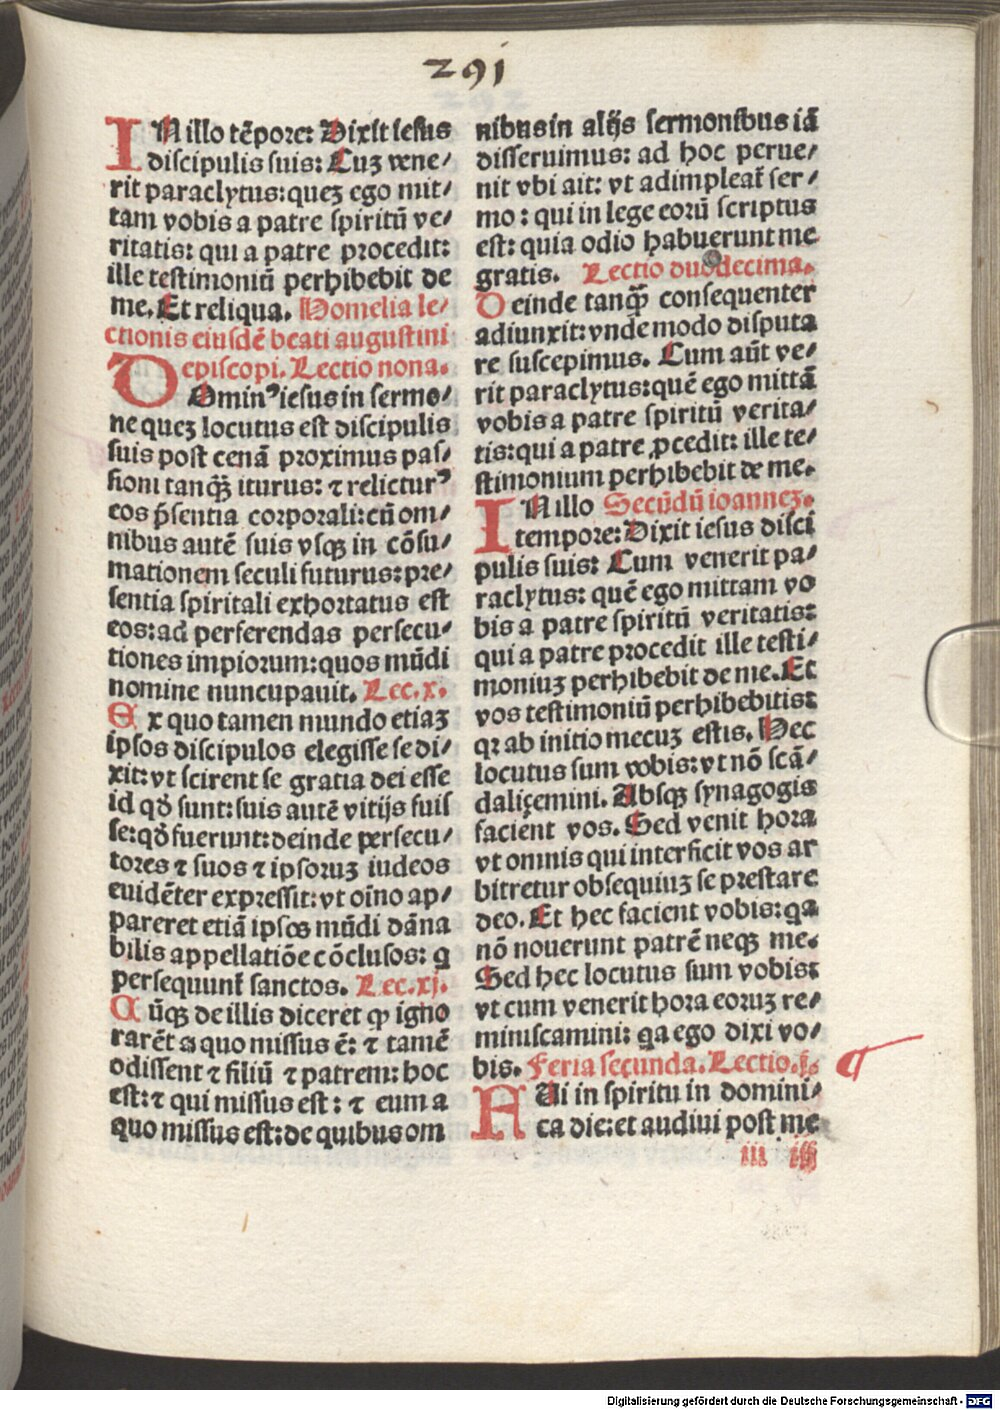 291
IN illo tēpore: Dixit iesus
discipulis suis: Cuꝫ vene/
rit paraclytus: queꝫ ego mit/
tam vobis a patre spiritū ve/
ritatis: qui a patre procedit:
ille testimoniū perhibebit de
me. Et reliqua. Homelia le/
ctionis eiusdē beati augustini
episcopi. Lectio nona.
DOminꝰ iesus in sermo/
ne queꝫ locutus est discipulis
suis post cenā proximus pas/
sioni tanqꝫ̄ iturus: ⁊ relicturꝰ
eos p̄sentia corporali: cū om/
nibus autē suis vsqꝫ in cōsu/
mationem seculi futurus: pre/
sentia spiritali exhortatus est
eos: ad perferendas persecu/
tiones impiorum: quos mūdi
nomine nuncupauit. Lec. x.
Ex quo tamen mundo etiaꝫ
ipsos discipulos elegisse se di/
xit: vt scirent se gratia dei esse
id qđ sunt: suis autē vitijs fuis
se: qđ fuerunt: deinde persecu/
tores ⁊ suos ⁊ ipsoruꝫ iudeos
euidēter expressit: vt oīno ap/
pareret etiā ipsos mūdi dāna
bilis appellatiōe cōclusos: q
persequunt᷑ sanctos. Lec. xj.
Cūqꝫ de illis diceret ꝙ igno
rarēt a quo missus ē: ⁊ tamē
odissent ⁊ filiū ⁊ patrem: hoc
est: ⁊ qui missus est: ⁊ eum a
quo missus est: de quibus om
nibus in alijs sermonibus iā
disseruimus: ad hoc perue/
nit vbi ait: vt adimpleat᷑ ser/
mo: qui in lege eorū scriptus
est: quia odio habuerunt me
gratis. Lectio duodecima.
Deinde tanqꝫ̄ consequenter
adiunxit: vnde modo disputa
re suscepimus. Cum aūt ve/
rit paraclytus: quē ego mittā
vobis a patre spiritū verita/
tis: qui a patre ꝓcedit: ille te/
stimonium perhibebit de me.
IN illo Secūdū ioanneꝫ.
tempore: Dixit iesus disci
pulis suis: Cum venerit pa/
raclytus: quē ego mittam vo
bis a patre spiritū veritatis:
qui a patre procedit ille testi/
moniuꝫ perhibebit de me. Et
vos testimoniū perhibebitis:
qꝛ ab initio mecuꝫ estis. Hec
locutus sum vobis: vt nō scā/
daliçemini. Absqꝫ synagogis
facient vos. Sed venit hora
vt omnis qui interficit vos ar
bitretur obsequiuꝫ se prestare
deo. Et hec facient vobis: qa
nō nouerunt patrē neqꝫ me.
Sed hec locutus sum vobis:
vt cum venerit hora eoruꝫ re/
miniscamini: qa ego dixi vo/
bis. Feria secunda. Lectio. j.
FUi in spiritu in domini/
ca die: et audiui post me
Digitalisierung gefördert durch die Deutsche Forschungsgemeinschaft - DFG